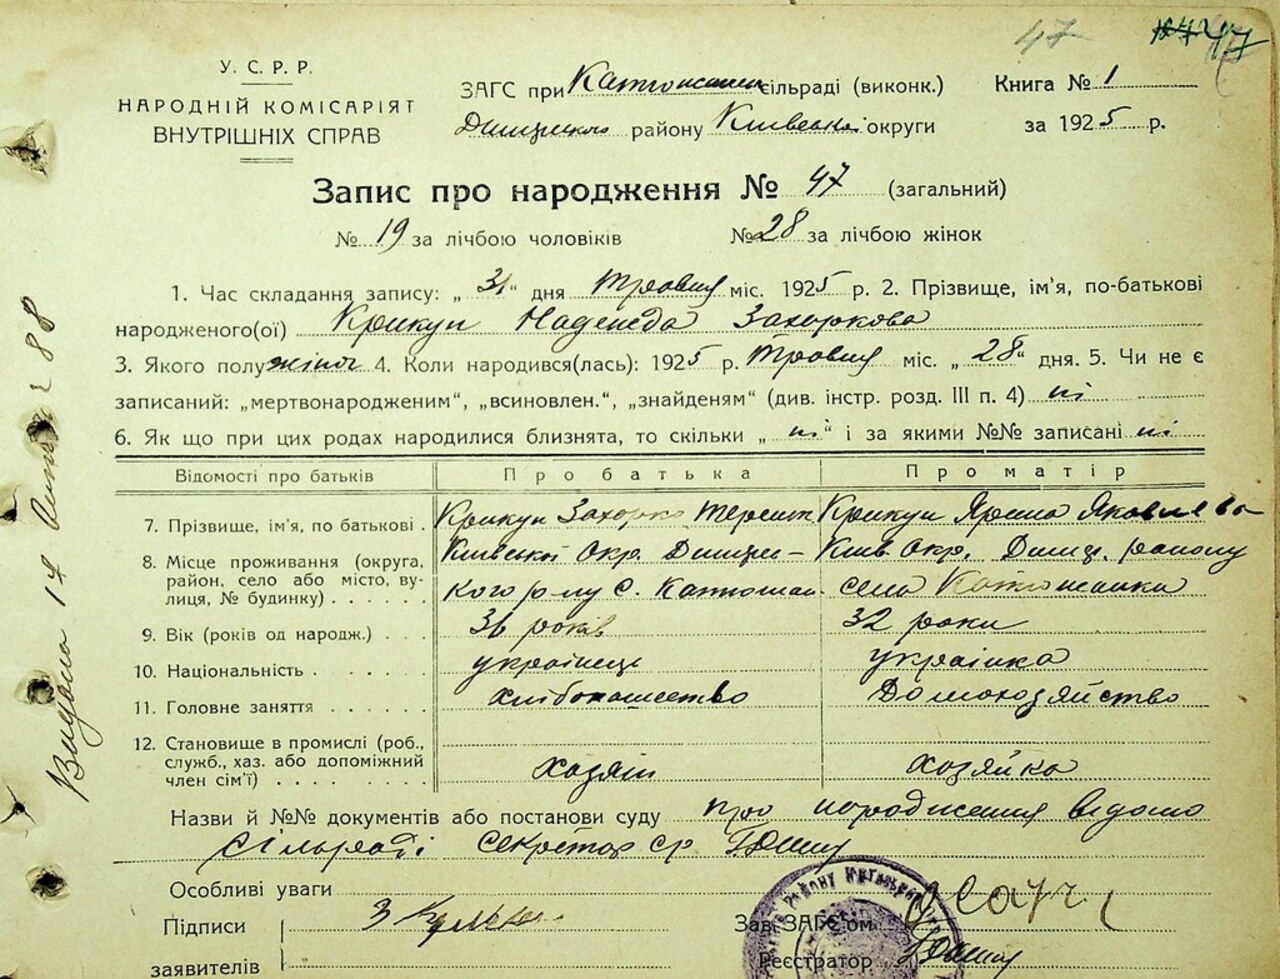 47
47
У. С. Р. Р.
НАРОДНІЙ КОМІСАРІЯТ
ВНУТРІШНІХ СПРАВ
ЗАГС при сільраді (виконк.)
району Київської округи
Книга № 1
за 1925 р.
Запис про народження № 47 (загальний)
№ 19 за лічбою чоловіків № 28 за лічбою жінок
1. Час складання запису: „31“ дня травня міс. 1925 р. 2. Прізвище, ім'я, по-батькові
народженого(ої) Крикун Надежда Захаркова
3. Якого полу жіноч 4. Коли народився(лась): 1925 р. травня міс. „28“ дня. 5. Чи не є
записаний: „мертвонародженим“, „всиновлен.“, „знайденям“ (див. інстр. розд. III п. 4) ні
6. Як що при цих родах народилися близнята, то скільки „ні“ і за якими №№ записані ні
Відомості про батьків Про батька Про матір
7. Прізвище, ім'я, по батькові . Крикун Захарко Крикун Ярина Яковлевa
8. Місце проживання (округа, район, село або місто, вулиця, № будинку) . . . . . .
Київської Окр. Київ. Окр. району
с. села
9. Вік (років од народж.) . . . 36 років 32 роки
10. Національність . . . . . . українець українка
11. Головне заняття . . . . . . хлібопашество Домохозяйство
12. Становище в промислі (роб., служб., хаз. або допоміжний член сім'ї) . . . . . . . . хазяїн хозяйка
Назви й №№ документів або постанови суду про народження відомо
сільраді секретар ср
Особливі уваги
Підписи
заявителів
Зав. ЗАГС'ом
Реєстратор
Видано 17
88